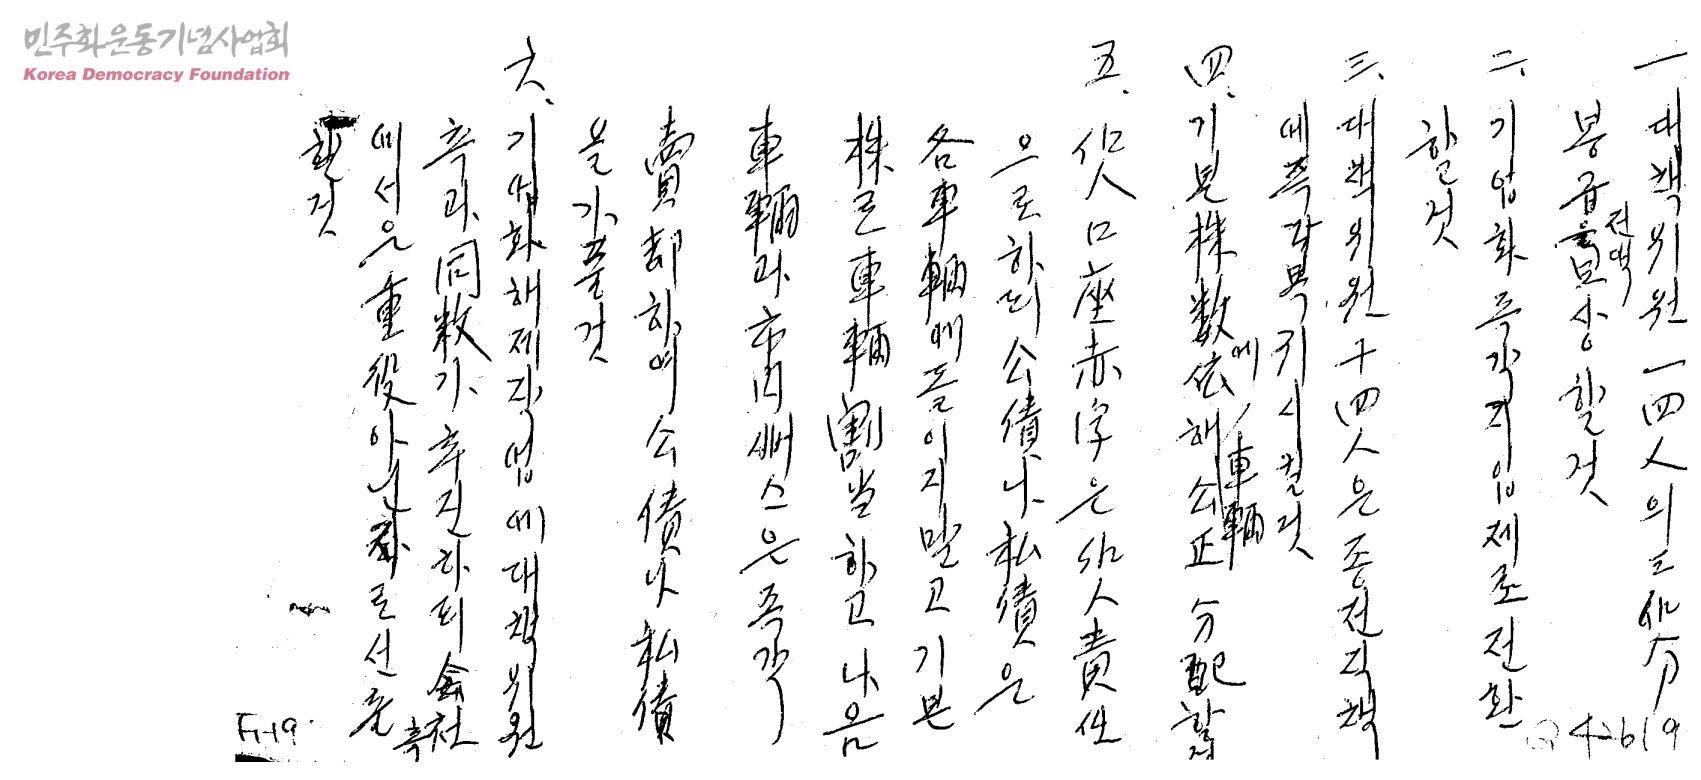 민주화운동기념사업회
Korea Democracy Foundation
一 대책위원 一四人의 企分
봉급을 전액 보상할것
二. 기업화 즉각 지입제로 전환
할것
三. 대책위원 十四人은 종전직책
에 즉각 복귀시킬것
四. 기본株数에 依해 車輛 公正 分配할것
五. 仙人口座赤字은 仙人責任
으로 하되 公債나 私債은
各車輛에 들이지 말고 기본
株로 車輛 割当하고 나음
車輛과 市内뻐스은 즉각
賣却하여 公債 私債
을 가풀것
六. 기업화 해제작업에 대책위원
측과 同数가 추진하되 会社측
에서은 重役 아닌 자로 선출
할것
F-19